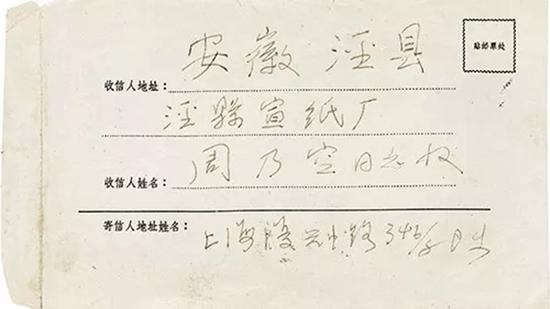 贴邮票处
安徽泾县
收信人地址：
泾縣宣纸厂
收信人姓名：周乃空同志收
寄信人地址姓名：上海陕 路346